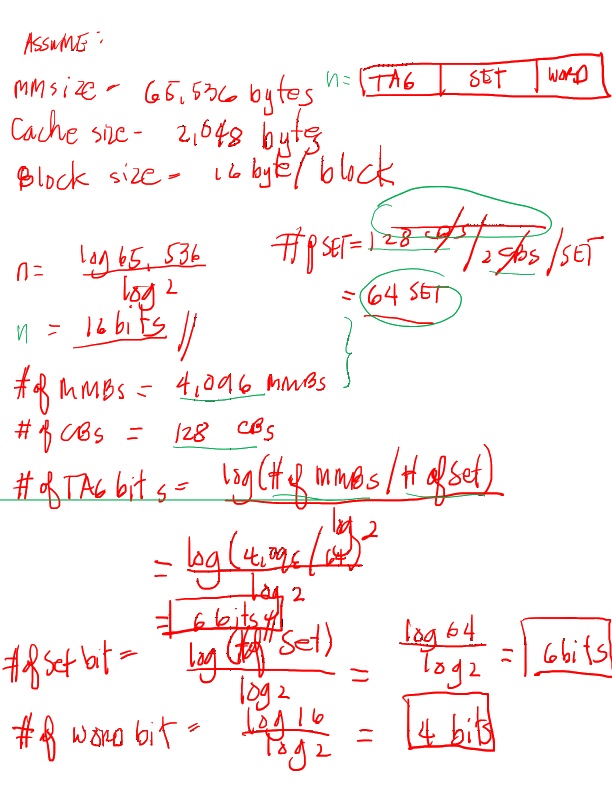 ASSUME:
MMsize - 65,536 bytes
n= TAG SET WORD
Cache size - 2,048 bytes
Block size = 16 byte/block
n = log 65,536 / log 2
# of SET = 128 CBs / 2 CBs / SET
= 64 SET
n = 16 bits //
# of MMBs = 4,096 MMBs
# of CBs = 128 CBs
# of TAG bits = log (# of MMBs / # of set) / log 2
= log (4,096 / 64) / log 2
= 6 bits //
# of set bit = log (# of set) / log 2 = log 64 / log 2 = 6 bits
# of word bit = log 16 / log 2 = 4 bits